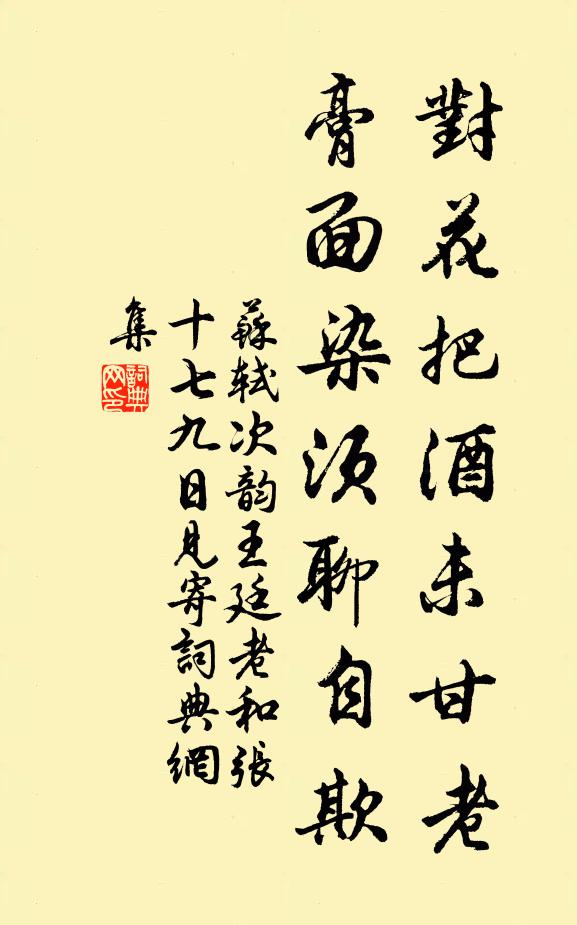 對花把酒未甘老
膏面染須聊自欺
蘇軾次韵王廷老和張
十七九日見寄詞典網
集
詞典
网印